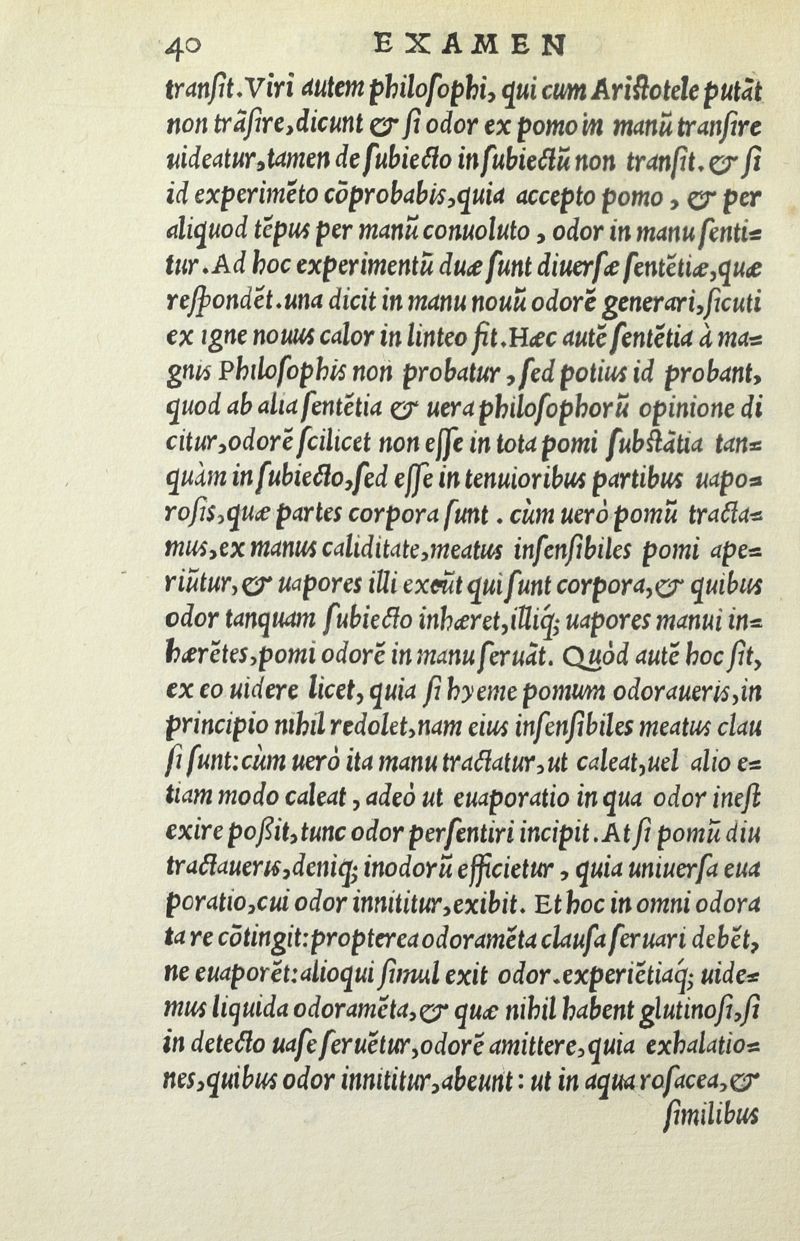 40 EXAMEN
tranſit. Viri autem philoſophi, qui cum Ariſtotele putãt
non trãſire, dicunt & ſi odor ex pomo in manũ tranſire
uideatur, tamen de ſubiecto in ſubiectũ non tranſit. & ſi
id experimẽto cõprobabis, quia accepto pomo, & per
aliquod tẽpus per manũ conuoluto, odor in manu ſenti=
tur. Ad hoc experimentũ duæ ſunt diuerſæ ſentẽtiæ, quæ
reſpondẽt. una dicit in manu nouũ odorẽ generari, ſicuti
ex igne nouus calor in linteo fit. Hæc autẽ ſentẽtia à ma=
gnis Philoſophis non probatur, ſed potius id probant,
quod ab alia ſentẽtia & uera philoſophorũ opinione di
citur, odorẽ ſcilicet non eſſe in tota pomi ſubſtãtia tan=
quàm in ſubiecto, ſed eſſe in tenuioribus partibus uapo=
roſis, quæ partes corpora ſunt. cùm uerò pomũ tracta=
mus, ex manus caliditate, meatus inſenſibiles pomi ape=
riũtur, & uapores illi exeũt qui ſunt corpora, & quibus
odor tanquam ſubiecto inhæret, illiq́; uapores manui in=
hærẽtes, pomi odorẽ in manu ſeruãt. Quòd autẽ hoc ſit,
ex eo uidere licet, quia ſi hyeme pomum odoraueris, in
principio nihil redolet, nam eius inſenſibiles meatus clau
ſi ſunt: cùm uerò ita manu tractatur, ut caleat, uel alio e=
tiam modo caleat, adeò ut euaporatio in qua odor ineſt
exire poßit, tunc odor perſentiri incipit. At ſi pomũ diu
tractaueris, deniq; inodorũ efficietur, quia uniuerſa eua
poratio, cui odor innititur, exibit. Et hoc in omni odora
ta re cõtingit: propterea odoramẽta clauſa ſeruari debẽt,
ne euaporẽt: alioqui ſimul exit odor. experiẽtiaq́; uide=
mus liquida odoramẽta, & quæ nihil habent glutinoſi, ſi
in detecto uaſe ſeruẽtur, odorẽ amittere, quia exhalatio=
nes, quibus odor innititur, abeunt: ut in aqua roſacea, &
ſimilibus